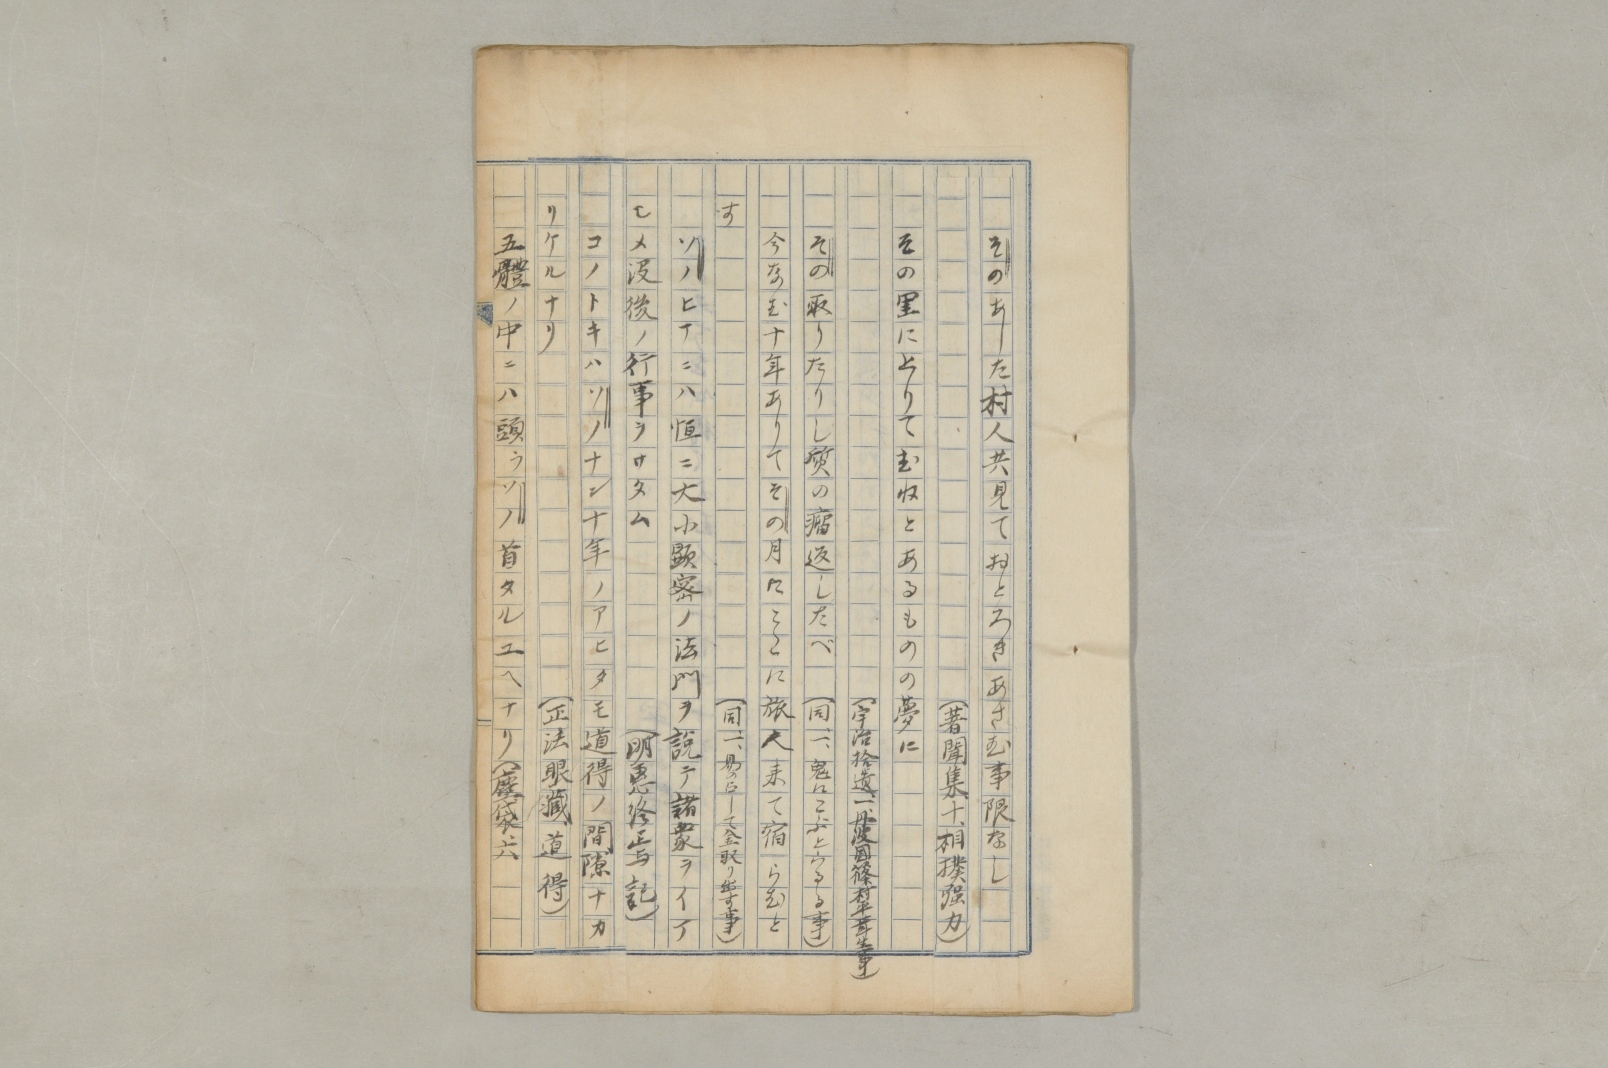 そのあした村人共見ておとろきあさむ事限なし
（著聞集十、相撲强力）
その里にとりてむねとあるものの夢に
（宇治拾遺一、丹波國篠村平茸生事）
その取りたりし質の瘤返したべ
（同一、鬼にこぶとらるる事）
今なむ十年ありてその月にここに旅人来て宿らむと
す
（同一、易の占して金取り出す事）
ソノヒナニハ恒ニ大小顯密ノ法門ヲ說テ諸衆ヲイマ
モメ沒後ノ行事ヲサタム
（明惠終正与記）
コノトキハソノナン十年ノアヒタモ道得ノ間隙ナカ
リケルナリ
（正法眼藏、道得）
五體ノ中ニハ頭ラソノ首タルユヘナリ（塵袋六